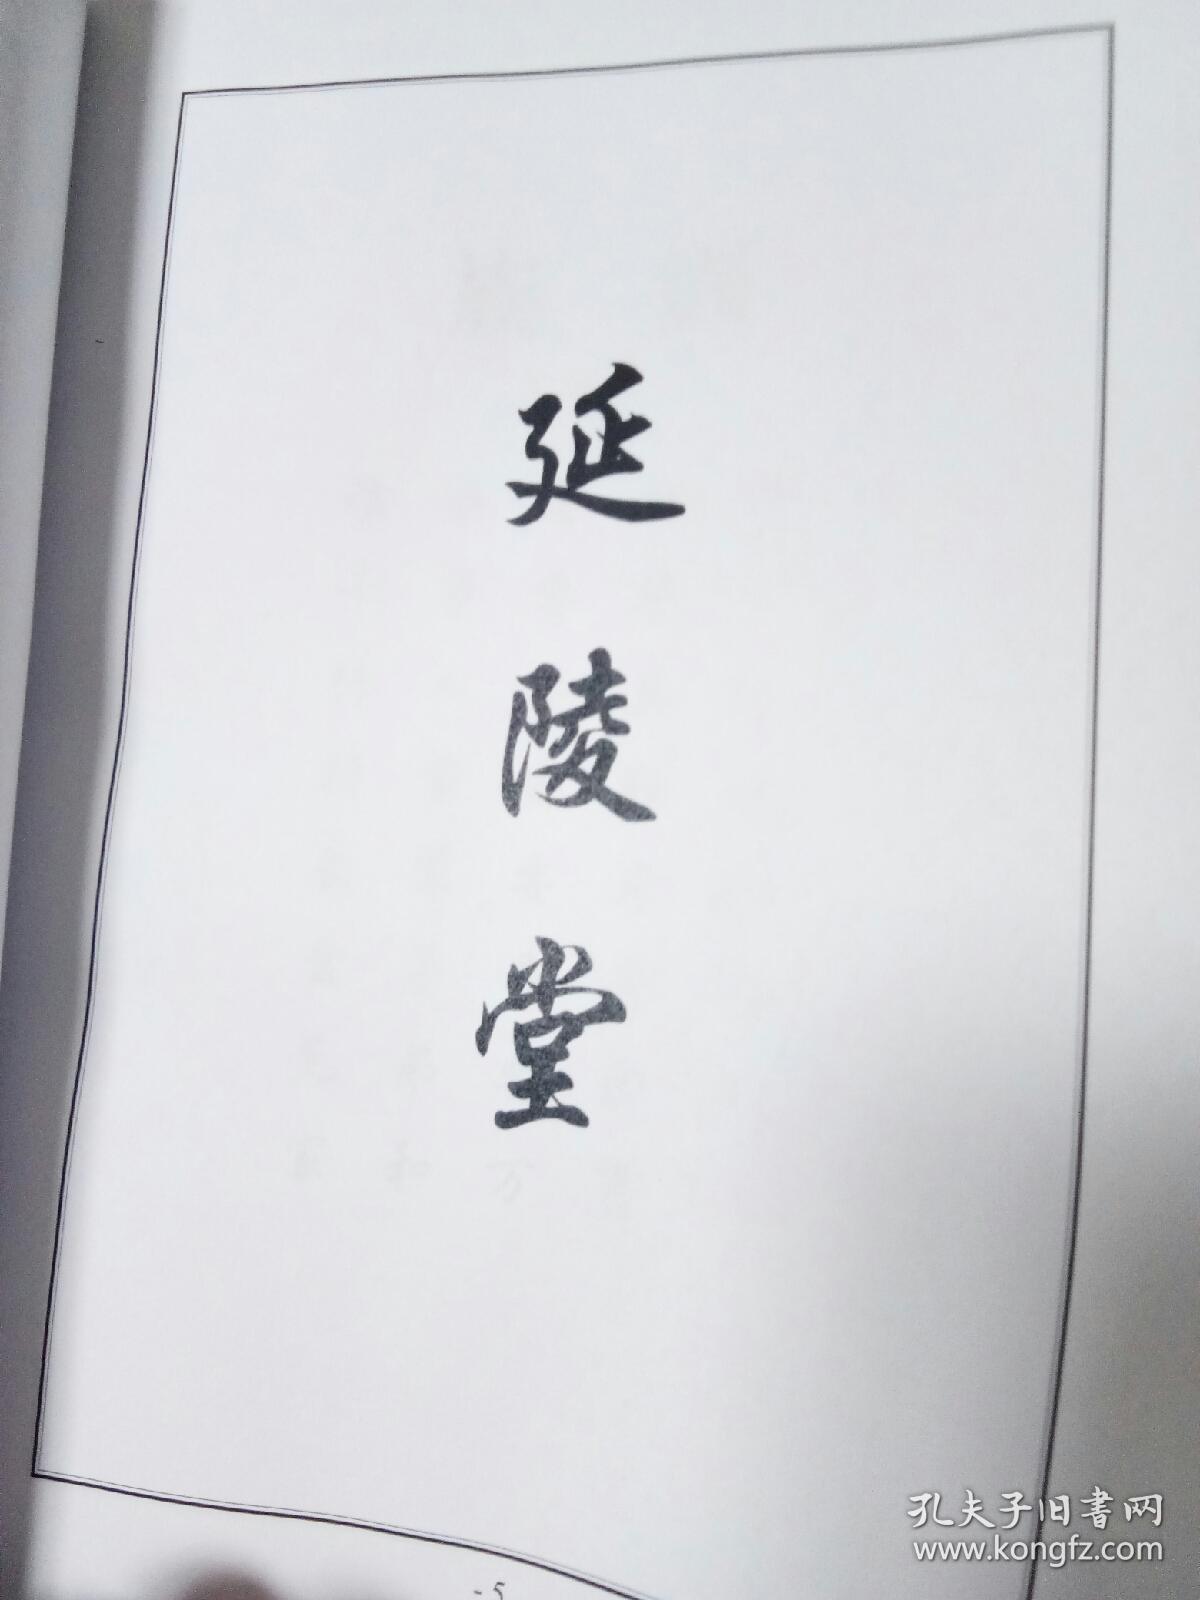 延陵堂
- 5
孔夫子旧书网
www.kongfz.com